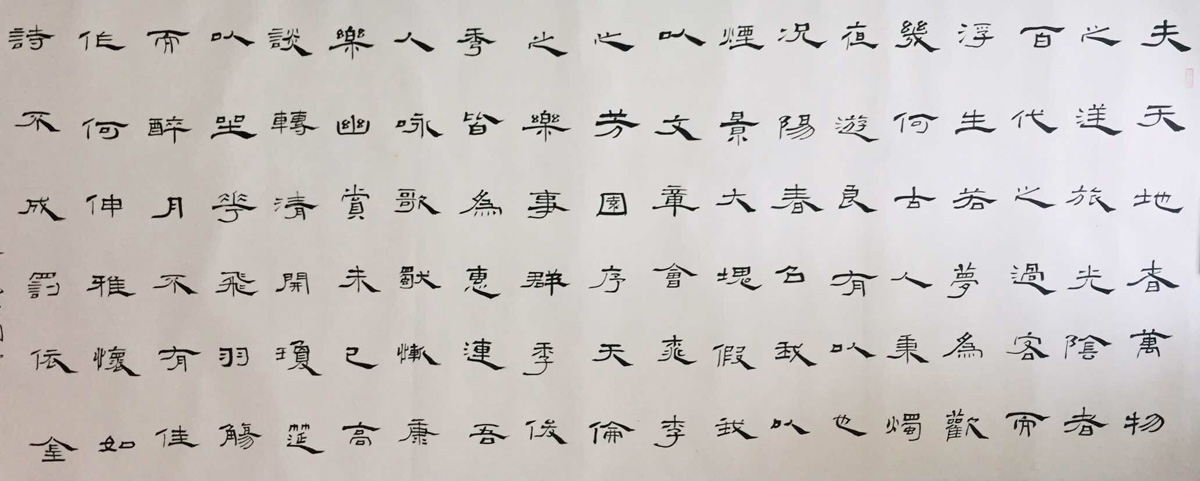 夫天地者萬物
之逆旅光陰者
百代之過客而
浮生若夢為歡
幾何古人秉燭
夜遊良有以也
况陽春召我以
煙景大塊假我
以文章會桃李
之芳園序天倫
之樂事群季俊
秀皆為惠連吾
人咏歌獨慚康
樂幽賞未已高
談轉清開瓊筵
以坐花飛羽觴
而醉月不有佳
作何伸雅懷如
詩不成罰依金